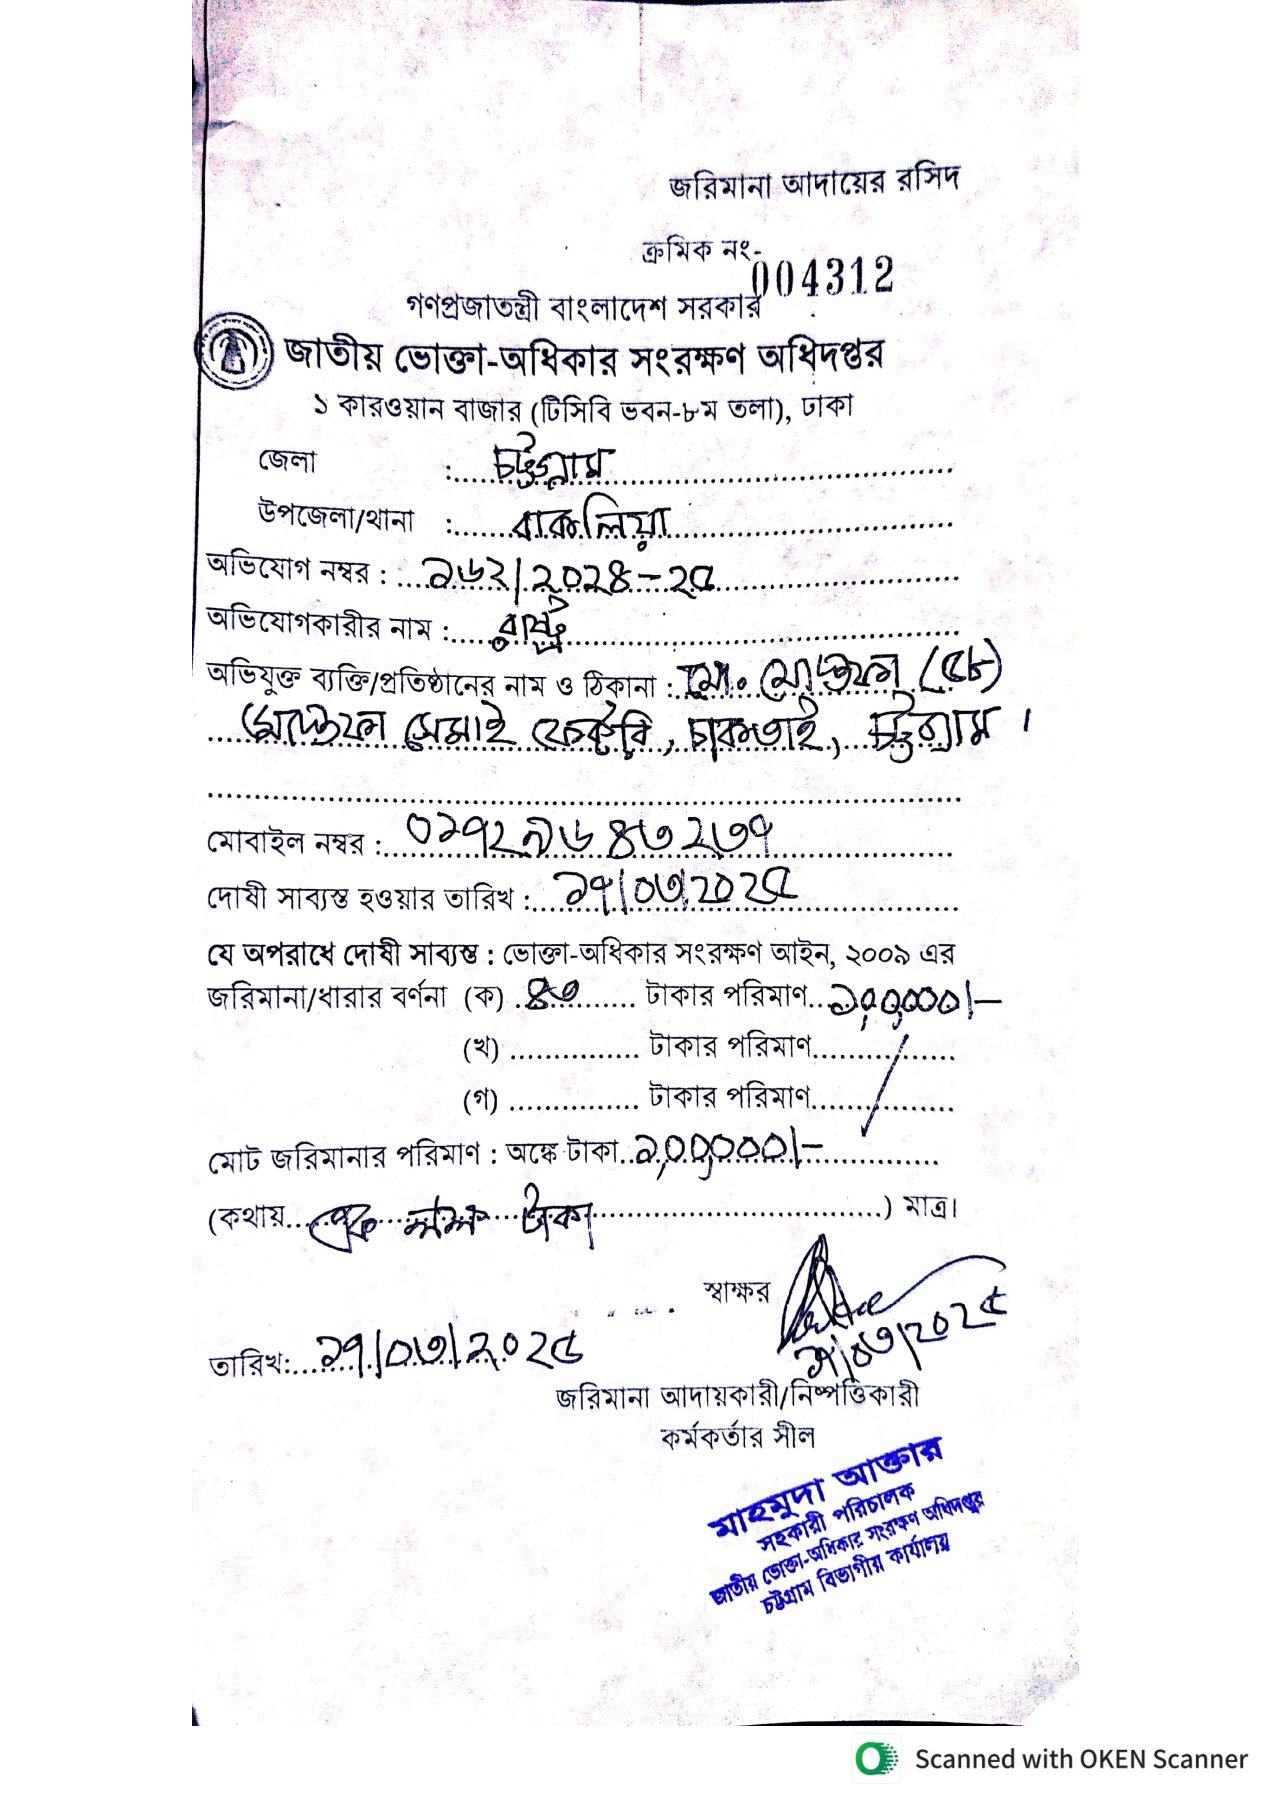 জরিমানা আদায়ের রসিদ
ক্রমিক নং- 004312
গণপ্রজাতন্ত্রী বাংলাদেশ সরকার
জাতীয় ভোক্তা-অধিকার সংরক্ষণ অধিদপ্তর
১ কারওয়ান বাজার (টিসিবি ভবন-৮ম তলা), ঢাকা
জেলা : চট্টগ্রাম
উপজেলা/থানা : বাকলিয়া
অভিযোগ নম্বর : ১৬২/২০২৪-২৫
অভিযোগকারীর নাম : রাষ্ট্র
অভিযুক্ত ব্যক্তি/প্রতিষ্ঠানের নাম ও ঠিকানা : মো. মোস্তফা (৫৮)
মোস্তফা সেমাই ফেক্টরি, চাকতাই, চট্টগ্রাম ।
মোবাইল নম্বর : ০১৭২৯৬৪৩২৩৭
দোষী সাব্যস্ত হওয়ার তারিখ : ১৭/০৩/২০২৫
যে অপরাধে দোষী সাব্যস্ত : ভোক্তা-অধিকার সংরক্ষণ আইন, ২০০৯ এর
জরিমানা/ধারার বর্ণনা (ক) ৪৩ টাকার পরিমাণ ১,০০,০০০/-
(খ) টাকার পরিমাণ
(গ) টাকার পরিমাণ
মোট জরিমানার পরিমাণ : অঙ্কে টাকা ১,০০,০০০/-
(কথায় এক লক্ষ টাকা ) মাত্র।
স্বাক্ষর
১৭/০৩/২০২৫
তারিখ: ১৭/০৩/২০২৫
জরিমানা আদায়কারী/নিষ্পত্তিকারী
কর্মকর্তার সীল
মাহমুদা আক্তার
সহকারী পরিচালক
জাতীয় ভোক্তা-অধিকার সংরক্ষণ অধিদপ্তর
চট্টগ্রাম বিভাগীয় কার্যালয়
Scanned with OKEN Scanner